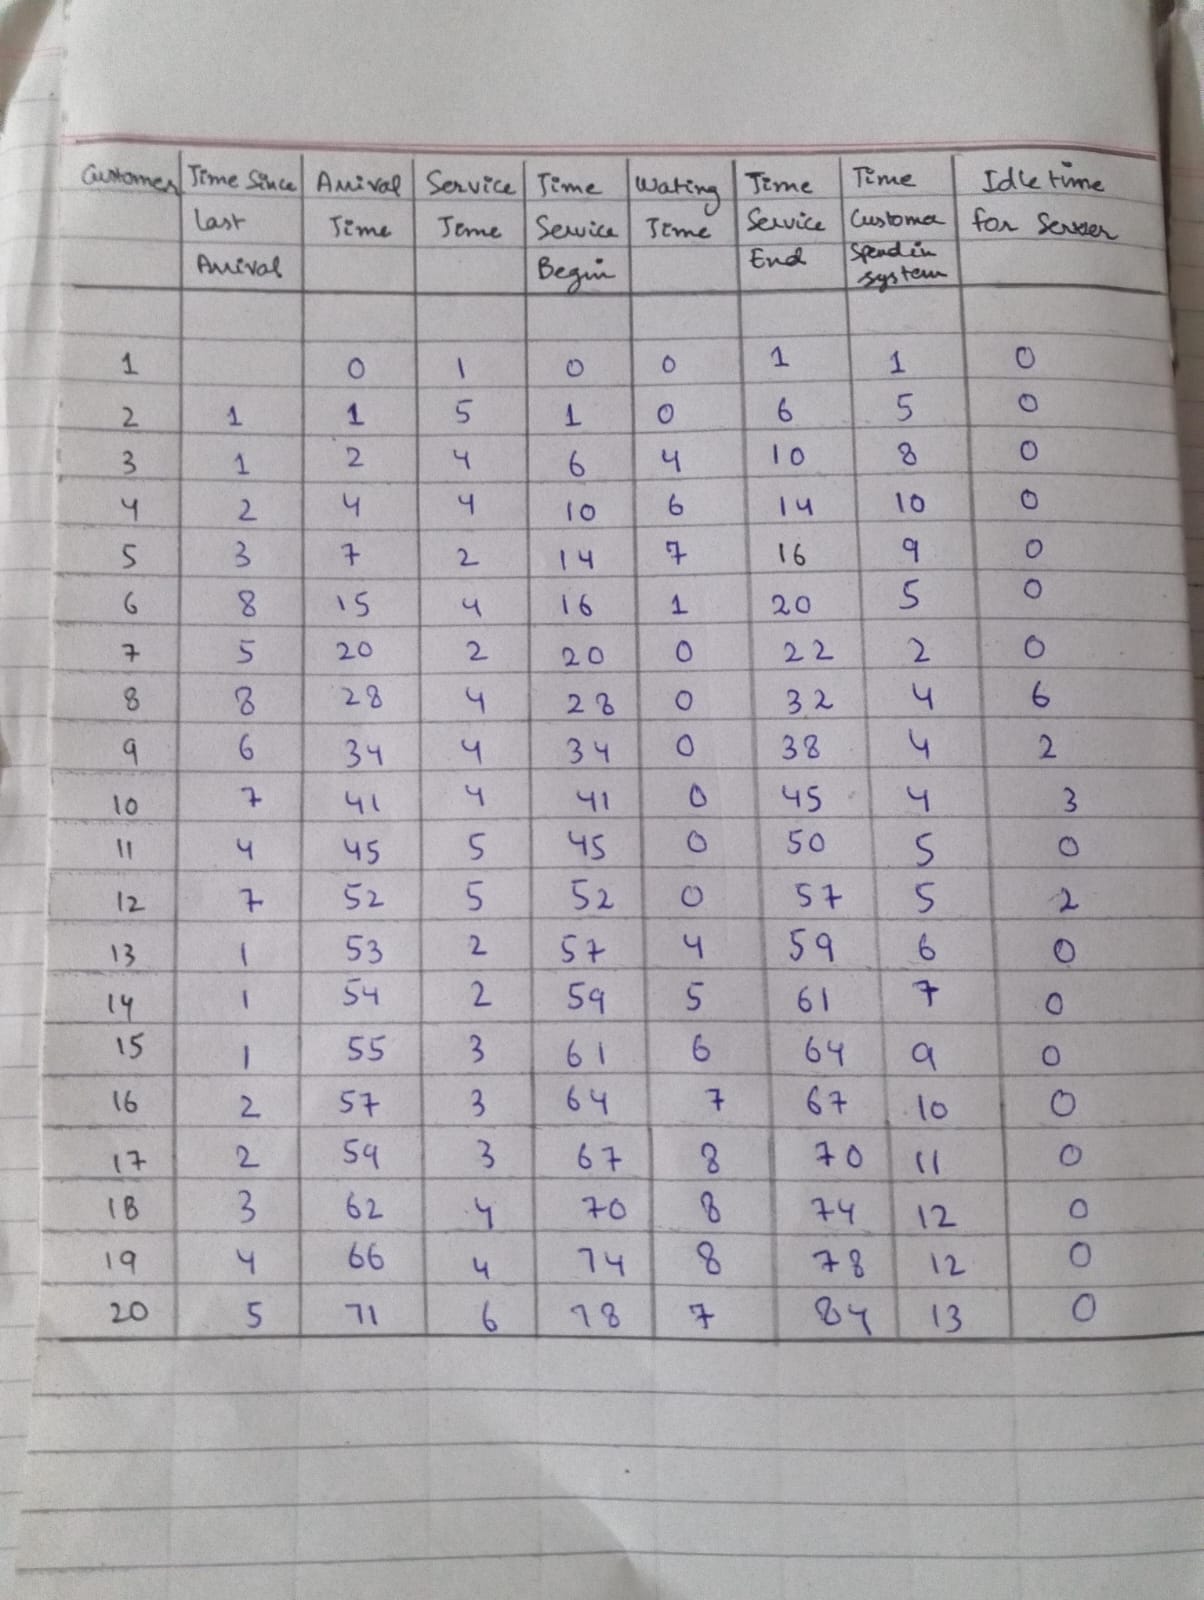 Customer Time Since Arrival Service Time Wating Time Time Idle time
Last Time Time Service Time Service Customer for Server
Arrival Begin End Spend in
system
1 0 1 0 0 1 1 0
2 1 1 5 1 0 6 5 0
3 1 2 4 6 4 10 8 0
4 2 4 4 10 6 14 10 0
5 3 7 2 14 7 16 9 0
6 8 15 4 16 1 20 5 0
7 5 20 2 20 0 22 2 0
8 8 28 4 28 0 32 4 6
9 6 34 4 34 0 38 4 2
10 7 41 4 41 0 45 4 3
11 4 45 5 45 0 50 5 0
12 7 52 5 52 0 57 5 2
13 1 53 2 57 4 59 6 0
14 1 54 2 59 5 61 7 0
15 1 55 3 61 6 64 9 0
16 2 57 3 64 7 67 10 0
17 2 59 3 67 8 70 11 0
18 3 62 4 70 8 74 12 0
19 4 66 4 74 8 78 12 0
20 5 71 6 78 7 84 13 0